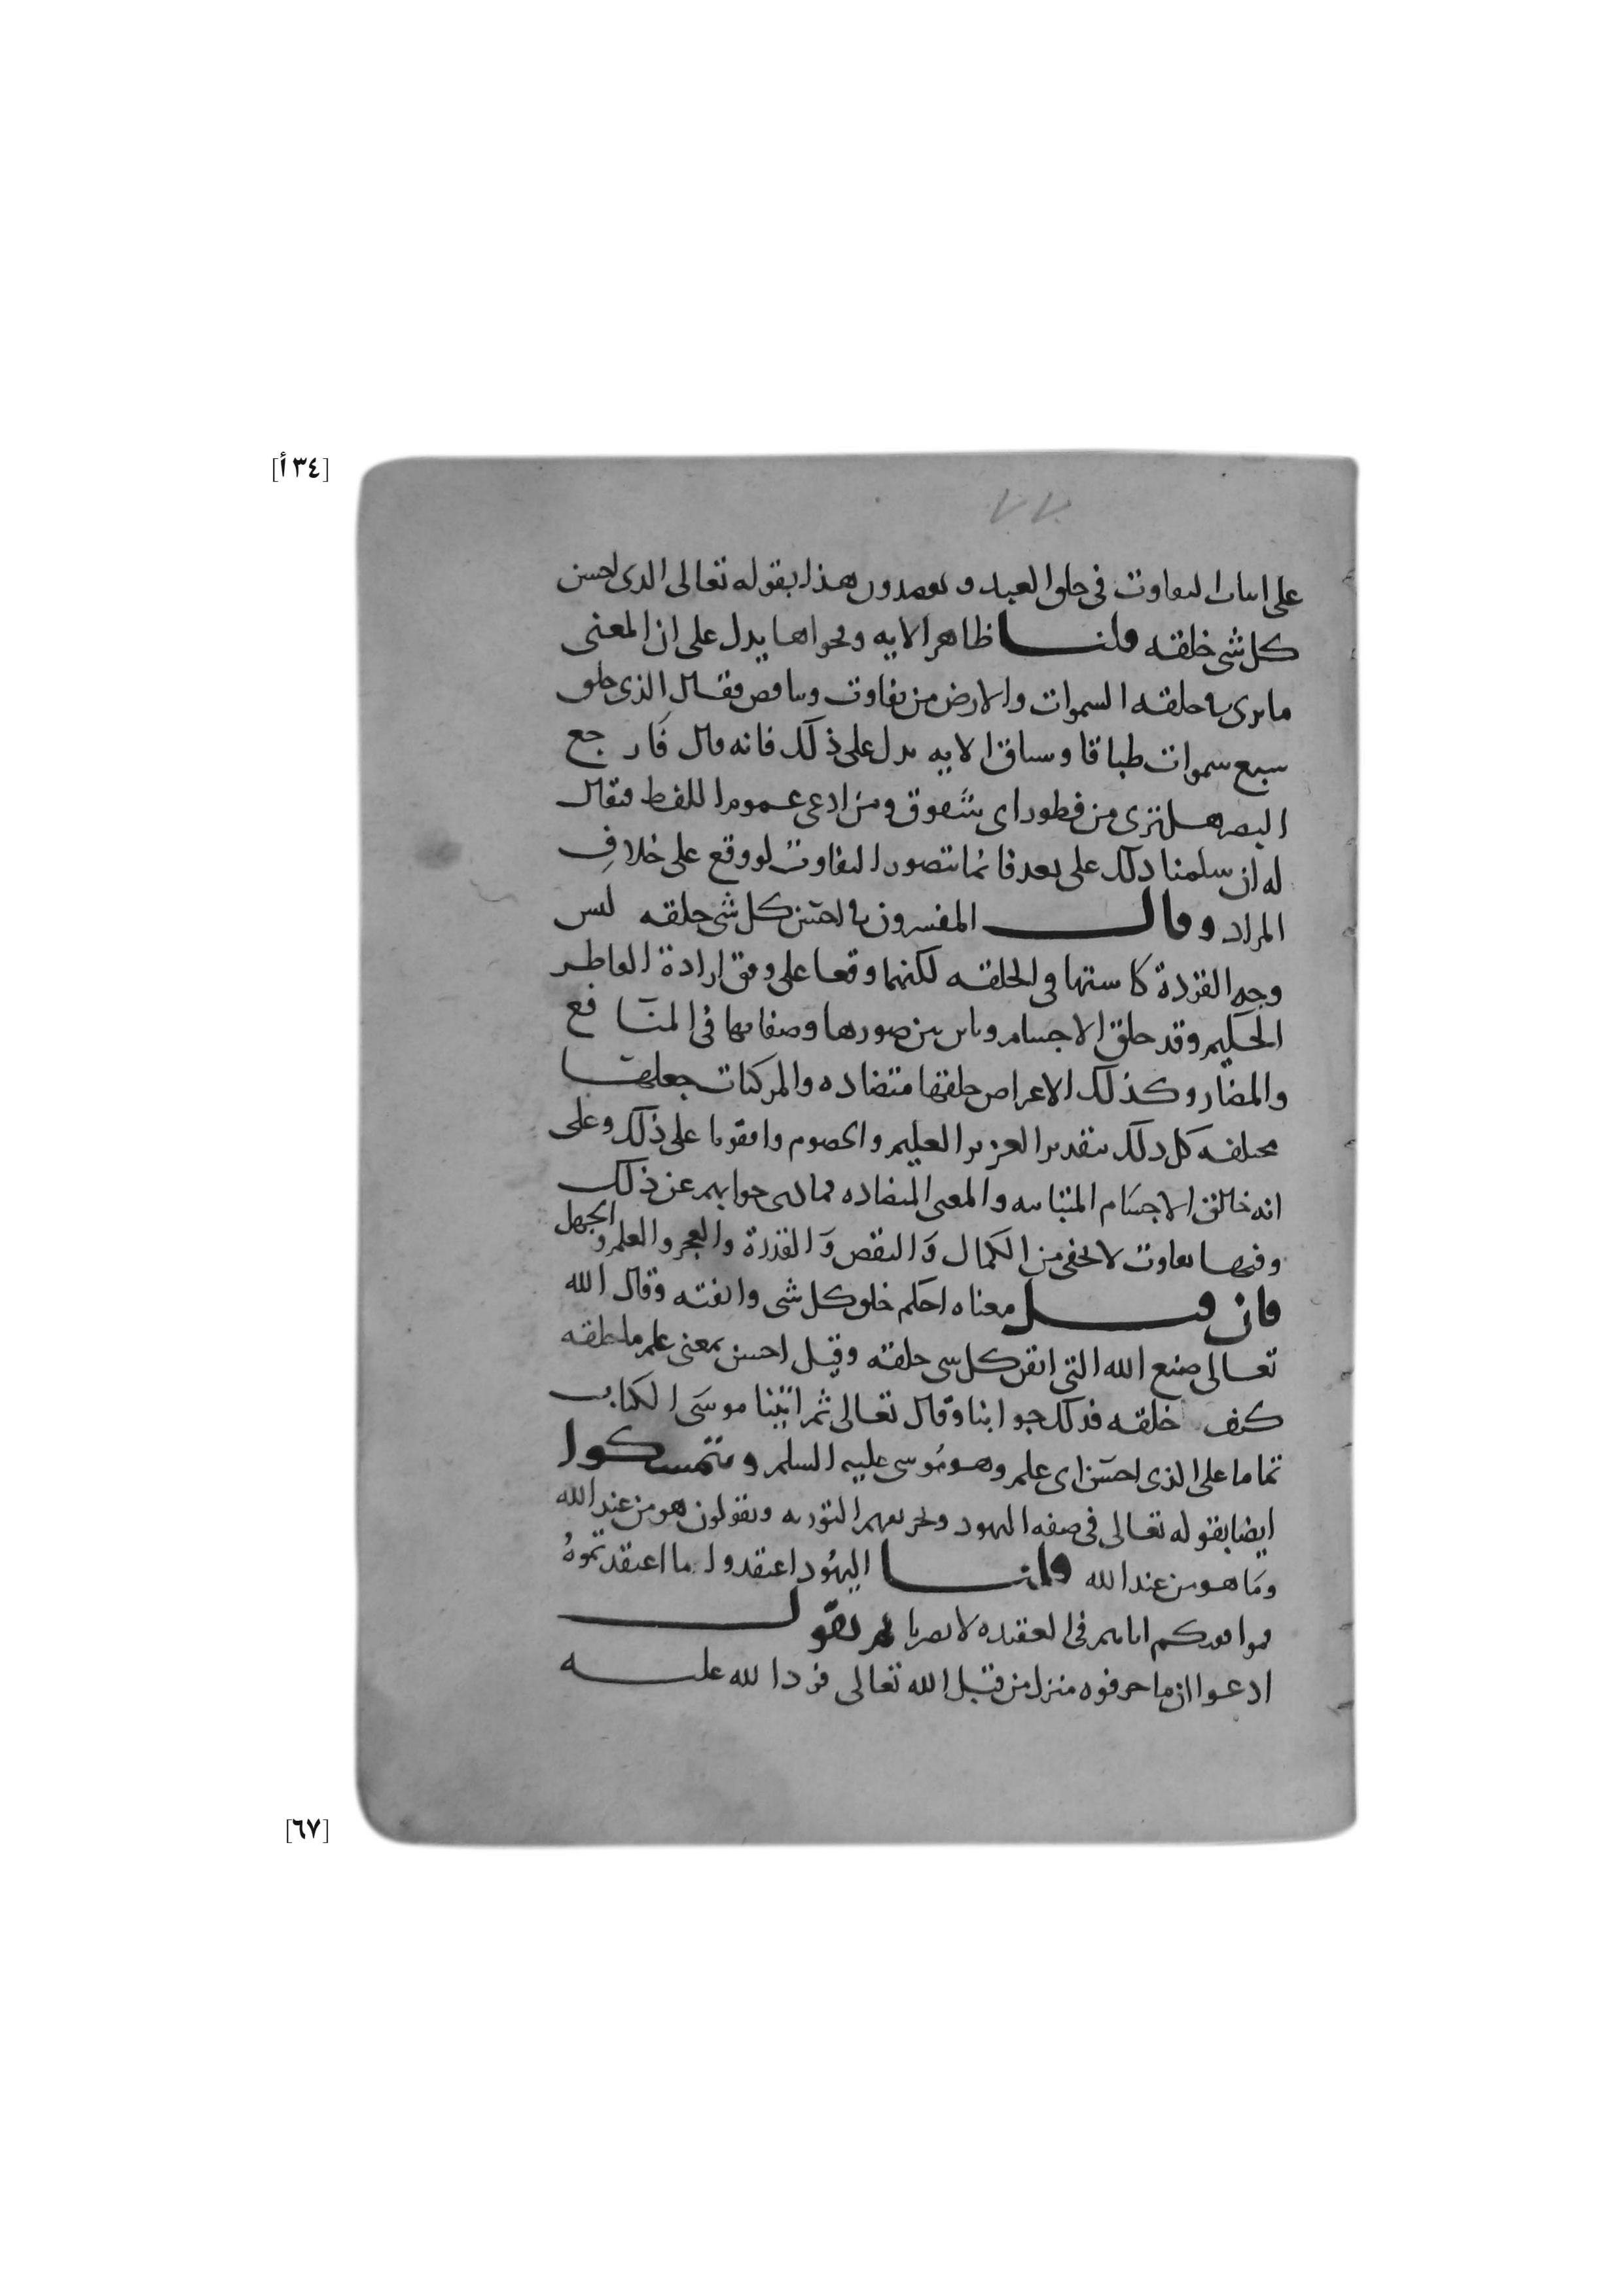 [٣٤ أ]
٧٧
على اثبات التفاوت في خلق العبد ويعضدون هذا بقوله تعالى الذي احسن
كل شي خلقه قلنا ظاهر الايه وفحواها يدل على ان المعنى
ما ترى في خلقه السموات والارض من تفاوت وتناقص فقال الذي خلق
سبع سموات طباقا وسياق الايه يدل على ذلك فانه قال فارجع
البصر هل ترى من فطور اي شقوق ومن ادعى عموم اللفظ فيقال
له ان سلمنا ذلك على بعد فانما يتصور التفاوت لو وقع على خلاف
المراد وقال المفسرون في احسن كل شي خلقه ليس
وجه القردة كاستها في الخلقه لكنهما وقعا على وفق ارادة الفاطر
الحكيم وقد خلق الاجسام وباين بين صورها وصفاتها في المنافع
والمضار وكذلك الاعراض خلقها متضاده والمركبات جعلها
مختلفه كل ذلك بتقدير العزيز العليم والخصوم وافقونا على ذلك وعلى
انه خالق الاجسام المتباينه والمعنى المتضاده فما لهم جوابهم عن ذلك
وفيها تفاوت لا يخفى من الكمال والنقص والقدرة والعجز والعلم والجهل
فان قيل معناه احكم خلق كل شي واتقنه وقال الله
تعالى صنع الله التي اتقن كل شي خلقه وقيل احسن بمعنى علم ما خلقه
كيف خلقه فذلك جوابنا وقال تعالى ثم اتينا موسى الكتاب
تماما على الذي احسن اي علم وهو موسى عليه السلم ويتمسكوا
ايضا بقوله تعالى في صفه اليهود وتحريفهم التوريه ويقولون هو من عند الله
وما هو من عند الله قلنا اليهود اعتقدوا ما اعتقدتموه
فموافقتكم اياهم في العقيده لا يضرنا ثم نقول
ادعوا ان ما حرفوه منزل من قبل الله تعالى فرد الله عليه
[٦٧]